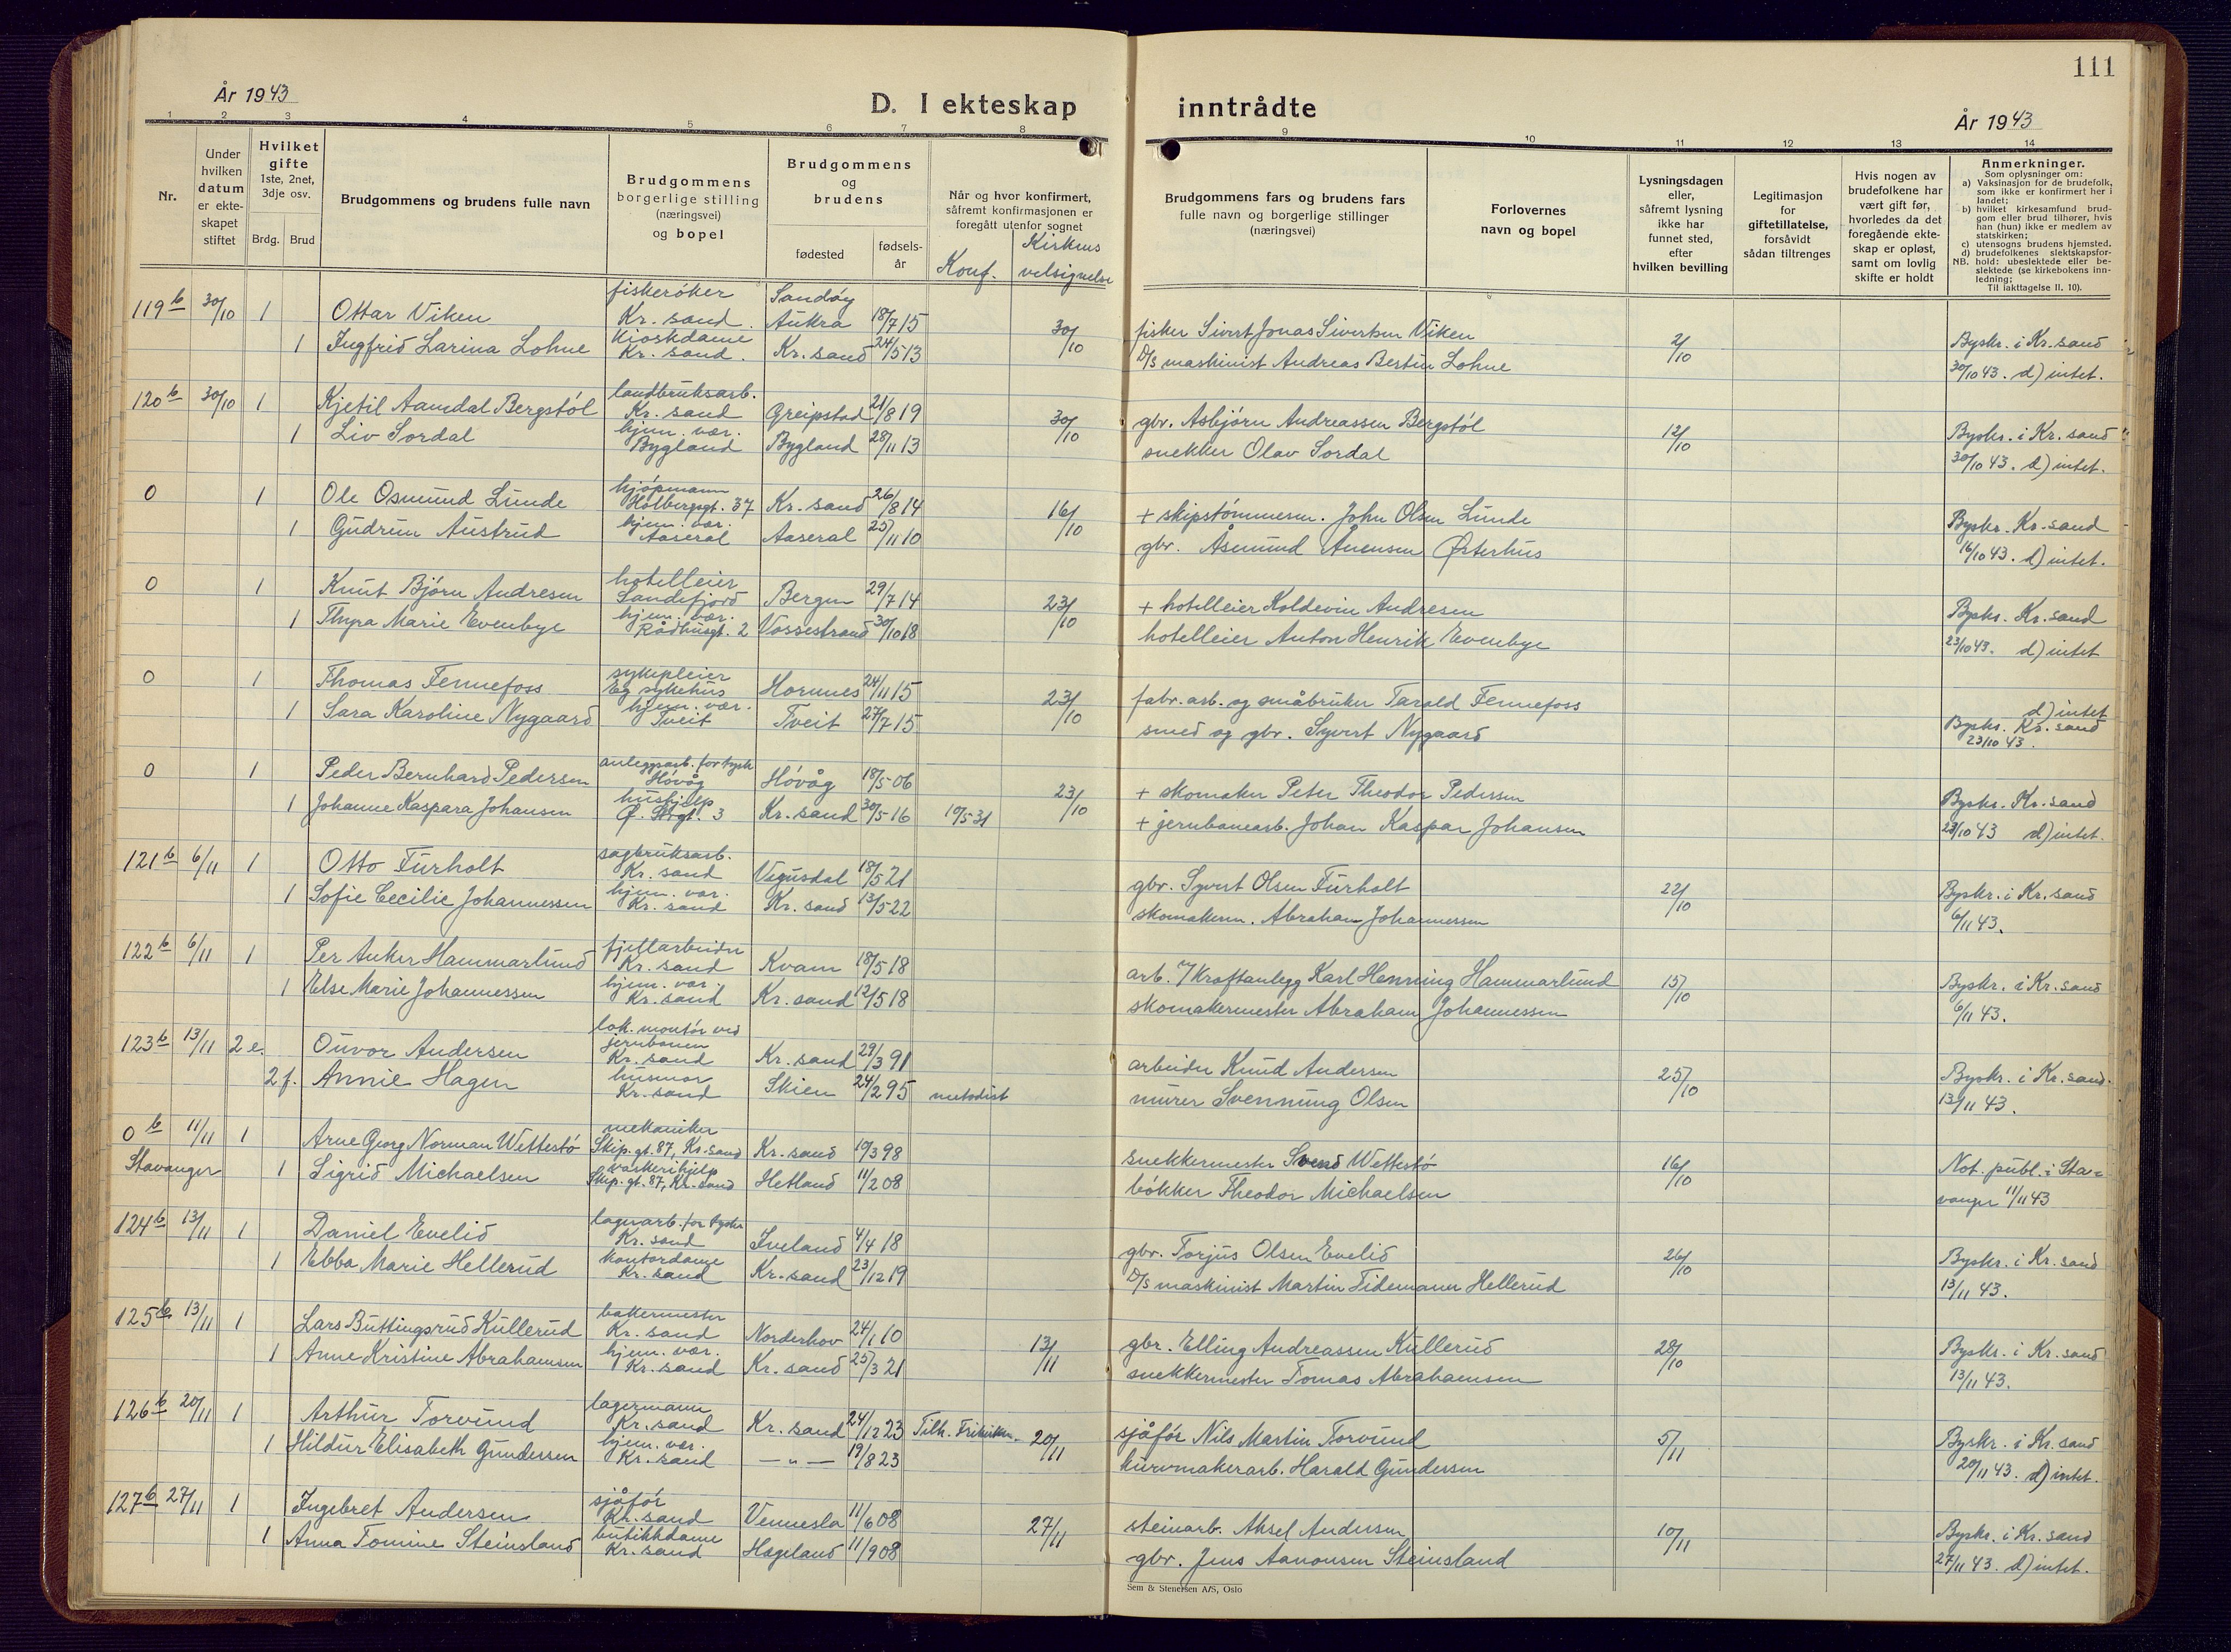 111
År 1943
D. I ekteskap inntrådte
År 1943
1 2 3 4 5 6 7 8 9 10 11 12 13 14
Nr.
Under hvilken datum er ekte-skapet stiftet
Hvilket gifte 1ste, 2net, 3dje osv.
Brdg. Brud
Brudgommens og brudens fulle navn
Brudgommens borgerlige stilling (næringsvei) og bopel
Brudgommens og brudens
fødested
fødsels-år
Når og hvor konfirmert, såfremt konfirmasjonen er foregått utenfor sognet
Konf. Kirkens velsignelse
Brudgommens fars og brudens fars fulle navn og borgerlige stillinger (næringsvei)
Forlovernes navn og bopel
Lysningsdagen eller, såfremt lysning ikke har funnet sted, efter hvilken bevilling
Legitimasjon for giftetillatelse, forsåvidt sådan tiltrenges
Hvis nogen av brudefolkene har vært gift før, hvorledes da det foregående ekte-skap er opløst, samt om lovlig skifte er holdt
Anmerkninger.
Som oplysninger om:
a) Vaksinasjon for de brudefolk, som ikke er konfirmert her i landet;
b) hvilket kirkesamfund brud-gom eller brud tilhører, hvis han (hun) ikke er medlem av statskirken;
c) utensogns brudens hjemsted.
d) brudefolkenes slektskapsfor-hold: ubeslektede eller be-slektede (se kirkebokens inn-ledning;
NB. Til iakttagelse II. 10).
119 b 30/10 1 Ottar Viken fiskerøker Kr. sand. Sandøy Aukra 18/7 15 30/10 fisker Sivert Jonas Sivertsen Viken 2/10 Byskr. i Kr. sand
1 Ingfrid Larina Lohne Kioskdame Kr. sand. Kr. sand 24/5 13 D/S maskinist Andreas Bertin Lohne 30/10 43. d) intet.
120 b 30/10 1 Kjetil Aamdal Bergstøl landbruksarb. Kr. sand Greipstad 21/8 19 30/10 gbr. Asbjørn Andreassen Bergstøl 12/10 Byskr. i Kr. sand
1 Liv Sordal hjem. vær. Bygland Bygland 28/11 13 snekker Olav Sordal 30/10 43. d) intet.
0 1 Ole Osmund Lunde kjøpmann Holbergsgt. 37 Kr. sand 26/8 14 16/10 + skipstømmerm. John Olsen Lunde Byskr. Kr. sand
1 Gudrun Austrud hjem. vær. Aaseral Aaseral 25/11 10 gbr. Åsmund Ånensen Østerhus 16/10 43. d) intet.
0 1 Knut Bjørn Andresen hotelleier Sandefjord Bergen 29/7 14 23/10 + hotelleier Koldevin Andresen Byskr. Kr. sand
1 Thyra Marie Evenbye hjem. vær. Rådhusgt. 2 Vossestrand 30/10 18 hotelleier Anton Henrik Evenbye 23/10 43. d) intet
0 1 Thomas Fennefoss sykepleier Eg sykehus Hornnes 24/11 15 23/10 fabr. arb. og småbruker Tarald Fennefoss d) intet
1 Sara Karoline Nygaard hjem. vær. Tveit Tveit 27/7 15 smed og gbr. Syvert Nygaard Byskr. Kr. sand 23/10 43.
0 1 Peder Bernhard Pedersen anleggsarb. for tysk Høvåg Høvåg 18/5 06 23/10 + skomaker Peter Theodor Pedersen Byskr. Kr. sand
1 Johanne Kaspara Johansen hushjelp Ø. Strgt. 3 Kr. sand 30/5 16 10/5 31 + jernbanearb. Johan Kaspar Johansen 23/10 43 d) intet.
121 b 6/11 1 Otto Furholt sagbruksarb. Kr. sand Vegusdal 18/5 21 gbr. Syvert Olsen Furholt 22/10 Byskr. i Kr. sand
1 Sofie Cecilie Johannessen hjem. vær. Kr. sand Kr. sand 13/5 22 skomakerm. Abraham Johannessen 6/11 43.
122 b 6/11 1 Per Anker Hammarlund fjellarbeider Kr. sand Kvam 18/5 18 arb. v/ Kraftanlegg Karl Henning Hammarlund 15/10 Byskr. i Kr. sand
1 Else Marie Johannessen hjem. vær. Kr. sand Kr. sand 12/5 18 skomakermester Abraham Johannessen 6/11 43.
123 b 13/11 2 e. Ouvor Andersen lok. montør ved jernbanen Kr. sand Kr. sand 29/3 91 arbeider Knud Andersen 25/10 Byskr. i Kr. sand.
2 f. Annie Hagen husmor Kr. sand Skien 24/2 95 metodist murer Svenning Olsen 13/11 43.
0 b 11/11 1 Arne Georg Norman Wettestø mekaniker Skip. gt. 87, Kr. sand Kr. sand 10/3 98 snekkermester Svend Wettestø 16/10 Not. publ. i Sta-
Stavanger 1 Sigrid Michaelsen vaskerihjelp Skip. gt. 87, Kr. sand Hetland 11/2 08 bøkker Theodor Michaelsen vanger 11/11 43
124 b 13/11 1 Daniel Evelid lagerarb. for tysker Kr. sand Iveland 4/4 18 gbr. Torjus Olsen Evelid 26/10 Byskr. i Kr. sand
1 Ebba Marie Hellerud kontordame Kr. sand Kr. sand 23/12 19 D/S maskinist Martin Tidemann Hellerud 13/11 43.
125 b 13/11 1 Lars Buttingsrud Kullerud bakermester Kr. sand Norderhov 24/1 10 13/11 gbr. Elling Andreassen Kullerud 28/10 Byskr. i Kr. sand
1 Anne Kristine Abrahamsen hjem. vær. Kr. sand Kr. sand 25/3 21 snekkermester Tomas Abrahamsen 13/11 43.
126 b 20/11 1 Arthur Torvund lagermann Kr. sand Kr. sand 24/12 23 Tilh. Frikirken 20/11 sjåfør Nils Martin Torvund 5/11 Byskr. i Kr. sand
1 Hildur Elisabeth Gundersen hjem. vær. Kr. sand — " — 19/8 23 kurvmakerarb. Harald Gundersen 20/11 43. d) intet.
127 b 27/11 1 Ingebret Andersen sjåfør Kr. sand Vennesla 11/6 08 27/11 steinarb. Aksel Andersen 10/11 Byskr. i Kr. sand
1 Anna Tomine Steinsland butikkdame Kr. sand Hægeland 11/9 08 gbr. Jens Aanonsen Steinsland 27/11 43. d) intet.
Sem & Stenersen A/S, Oslo